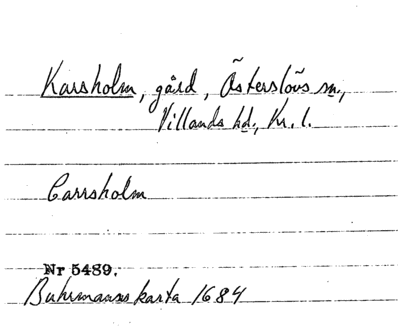 Karsholm, gård, Österslövs sn.,
Villands hd., Kr. l.
Carrsholm
Nr 5489.
Buhrmanns karta 1684